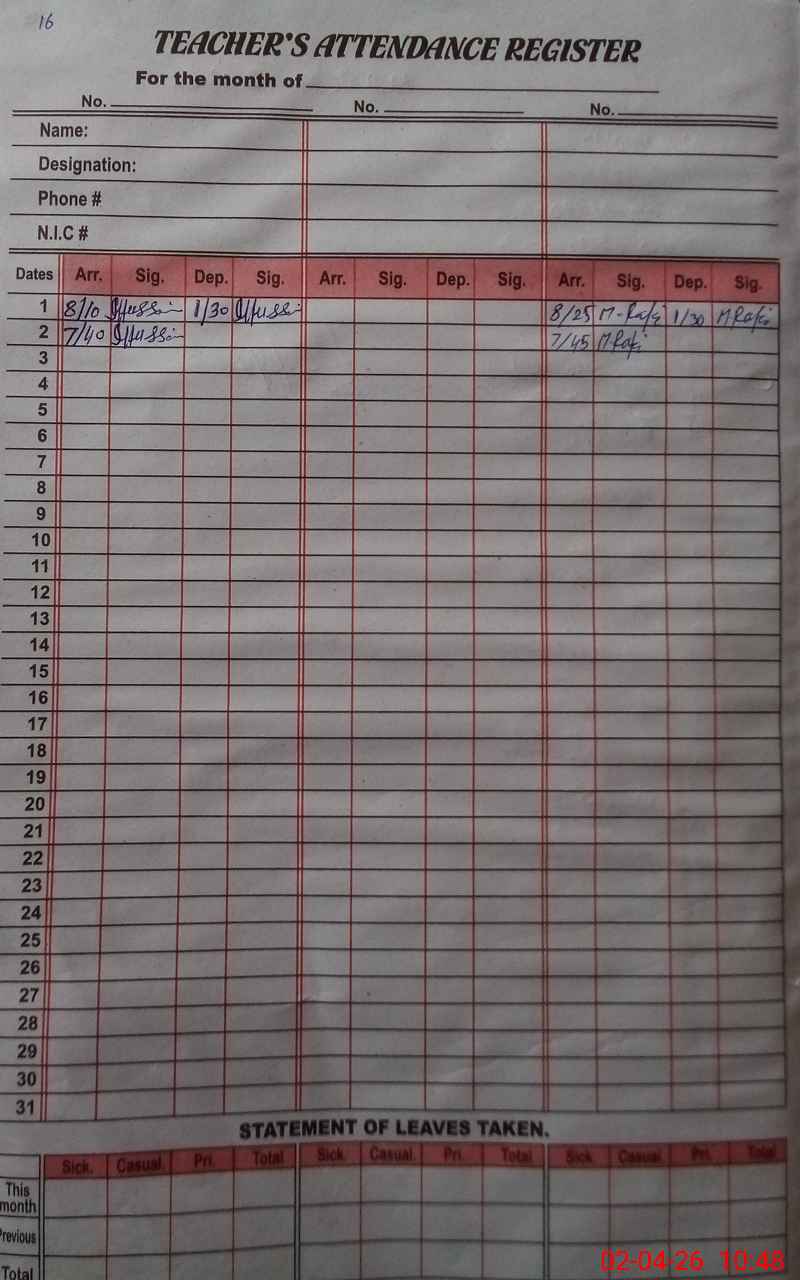 16
TEACHER'S ATTENDANCE REGISTER
For the month of
No. No. No.
Name:
Designation:
Phone #
N.I.C #
Dates Arr. Sig. Dep. Sig. Arr. Sig. Dep. Sig. Arr. Sig. Dep. Sig.
1 8/10 1/30 8/25 M-Rafi 1/30 M Rafi
2 7/40 7/45 M Rafi
3
4
5
6
7
8
9
10
11
12
13
14
15
16
17
18
19
20
21
22
23
24
25
26
27
28
29
30
31
STATEMENT OF LEAVES TAKEN.
Sick. Casual. Pri. Total Sick. Casual. Pri. Total Sick. Casual. Pri. Total
This month
Previous
Total
02-04-26 10:48